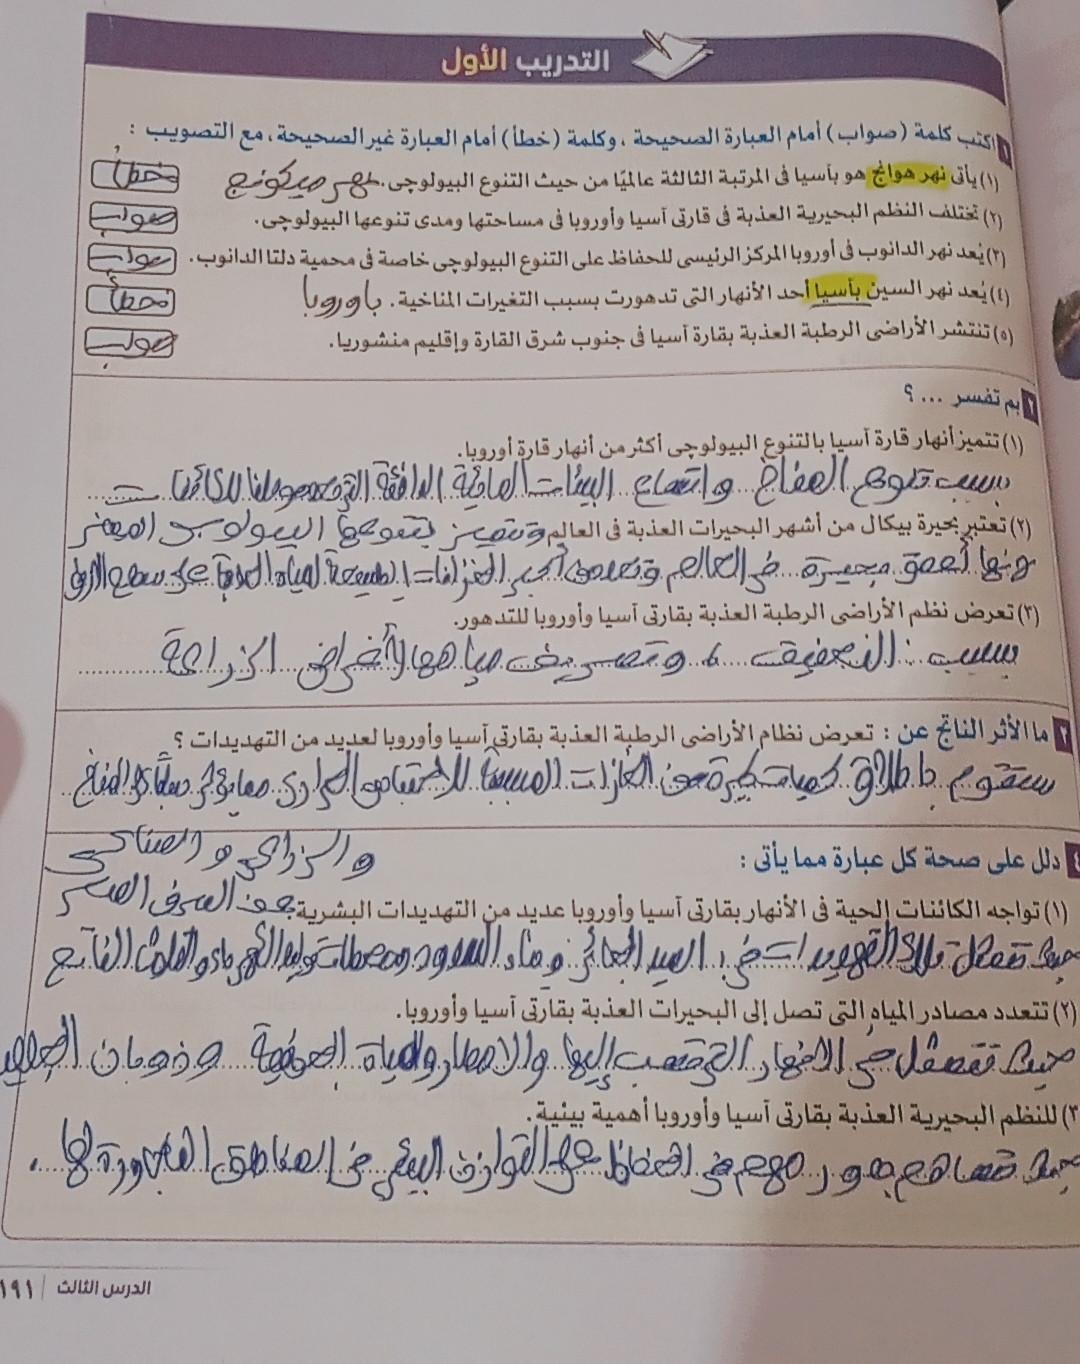 التدريب الأول
١ اكتب كلمة (صواب) أمام العبارة الصحيحة ، وكلمة (خطأ) أمام العبارة غير الصحيحة، مع التصويب :
(١) يأتى نهر هوانج هو بآسيا فى المرتبة الثالثة عالميًا من حيث التنوع البيولوجى. نهر ميكونج خطأ
(٢) تختلف النظم البحيرية العذبة فى قارتى آسيا وأوروبا فى مساحتها ومدى تنوعها البيولوجى. صواب
(٣) يُعد نهر الدانوب فى أوروبا المركز الرئيسى للحفاظ على التنوع البيولوجى خاصة فى محمية دلتا الدانوب. صواب
(٤) يُعد نهر السين بآسيا أحد الأنهار التى تدهورت بسبب التغيرات المناخية. باوروبا خطأ
(٥) تنتشر الأراضى الرطبة العذبة بقارة آسيا فى جنوب شرق القارة وإقليم منشوريا. صواب
٢ بم تفسر ... ؟
(١) تتميز أنهار قارة آسيا بالتنوع البيولوجى أكثر من أنهار قارة أوروبا.
بسبب تنوع المناخ واتساع البيئات المائية الدافئة التى
(٢) تعتبر بحيرة بيكال من أشهر البحيرات العذبة فى العالم وتتميز بتنوعها البيولوجى
أعمق بحيرة فى العالم وتعد من أكبر الخزانات الطبيعية لمياه العذبة على سطح الأرض
(٣) تعرض نظم الأراضى الرطبة العذبة بقارتى آسيا وأوروبا للتدهور.
بسبب : التجفيف ، وتصريف مياهها لأغراض الزراعة
٣ ما الأثر الناتج عن : تعرض نظام الأراضى الرطبة العذبة بقارتى آسيا وأوروبا لعديد من التهديدات ؟
ستقوم باطلاق كميات كبيرة من الغازات المسببة للاحتباس الحرارى مما يؤثر سلبًا على المناخ
٤ دلل على صحة كل عبارة مما يأتى :
والزراعى والصناعى
(١) تواجه الكائنات الحية فى الأنهار بقارتى آسيا وأوروبا عديد من التهديدات البشرية. الصرف
حيث تتمثل تلك التهديدات فى : الصيد الجائر وبناء السدود ومحطات توليد الكهرباء والتلوث الناتج
(٢) تتعدد مصادر المياه التى تصل إلى البحيرات العذبة بقارتى آسيا وأوروبا.
حيث تتمثل فى الانهار التى تصب إليها والامطار والمياه الجوفية وذوبان الجليد
(٣) للنظم البحيرية العذبة بقارتى آسيا وأوروبا أهمية بيئية.
حيث تساهم بدور مهم فى الحفاظ على التوازن البيئى فى المناطق المجاورة لها.
الدرس الثالث | ١٩١